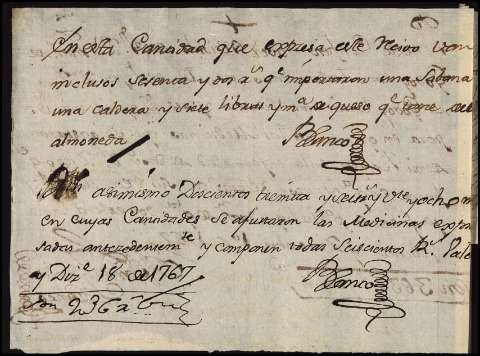 En esta Cantidad que expresa este Recivo van
inclusos Sesenta y dos rs. qe. importaron una Sabana
una caldera y siete libras y ma. de queso qe. tome de la
almoneda
Blanco
asimismo Doscientos treinta y seis rs. y ocho m
en cuyas Cantidades se ajustaron las Medicinas expre
sadas antecedentemte. y componen todas Seiscientos Rs. Vale
y Dize. 18 de 1767
Blanco
Son 236 rs.